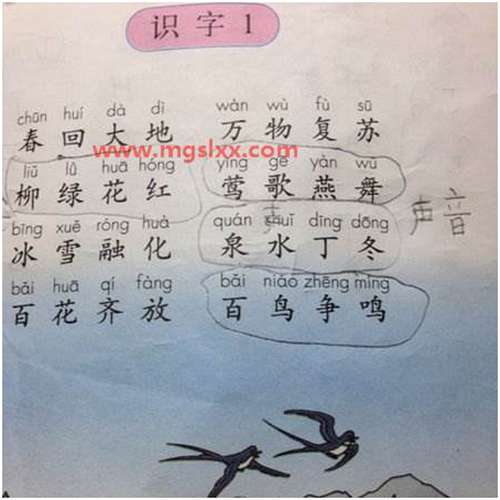 识字1
chūn huí dà dì wàn wù fù sū
春回大地 万物复苏
www.mgslxx.com
liǔ lǜ huā hóng yīng gē yàn wǔ
柳绿花红 莺歌燕舞
声音
bīng xuě róng huà quán shuǐ dīng dōng
冰雪融化 泉水丁冬
bǎi huā qí fàng bǎi niǎo zhēng míng
百花齐放 百鸟争鸣